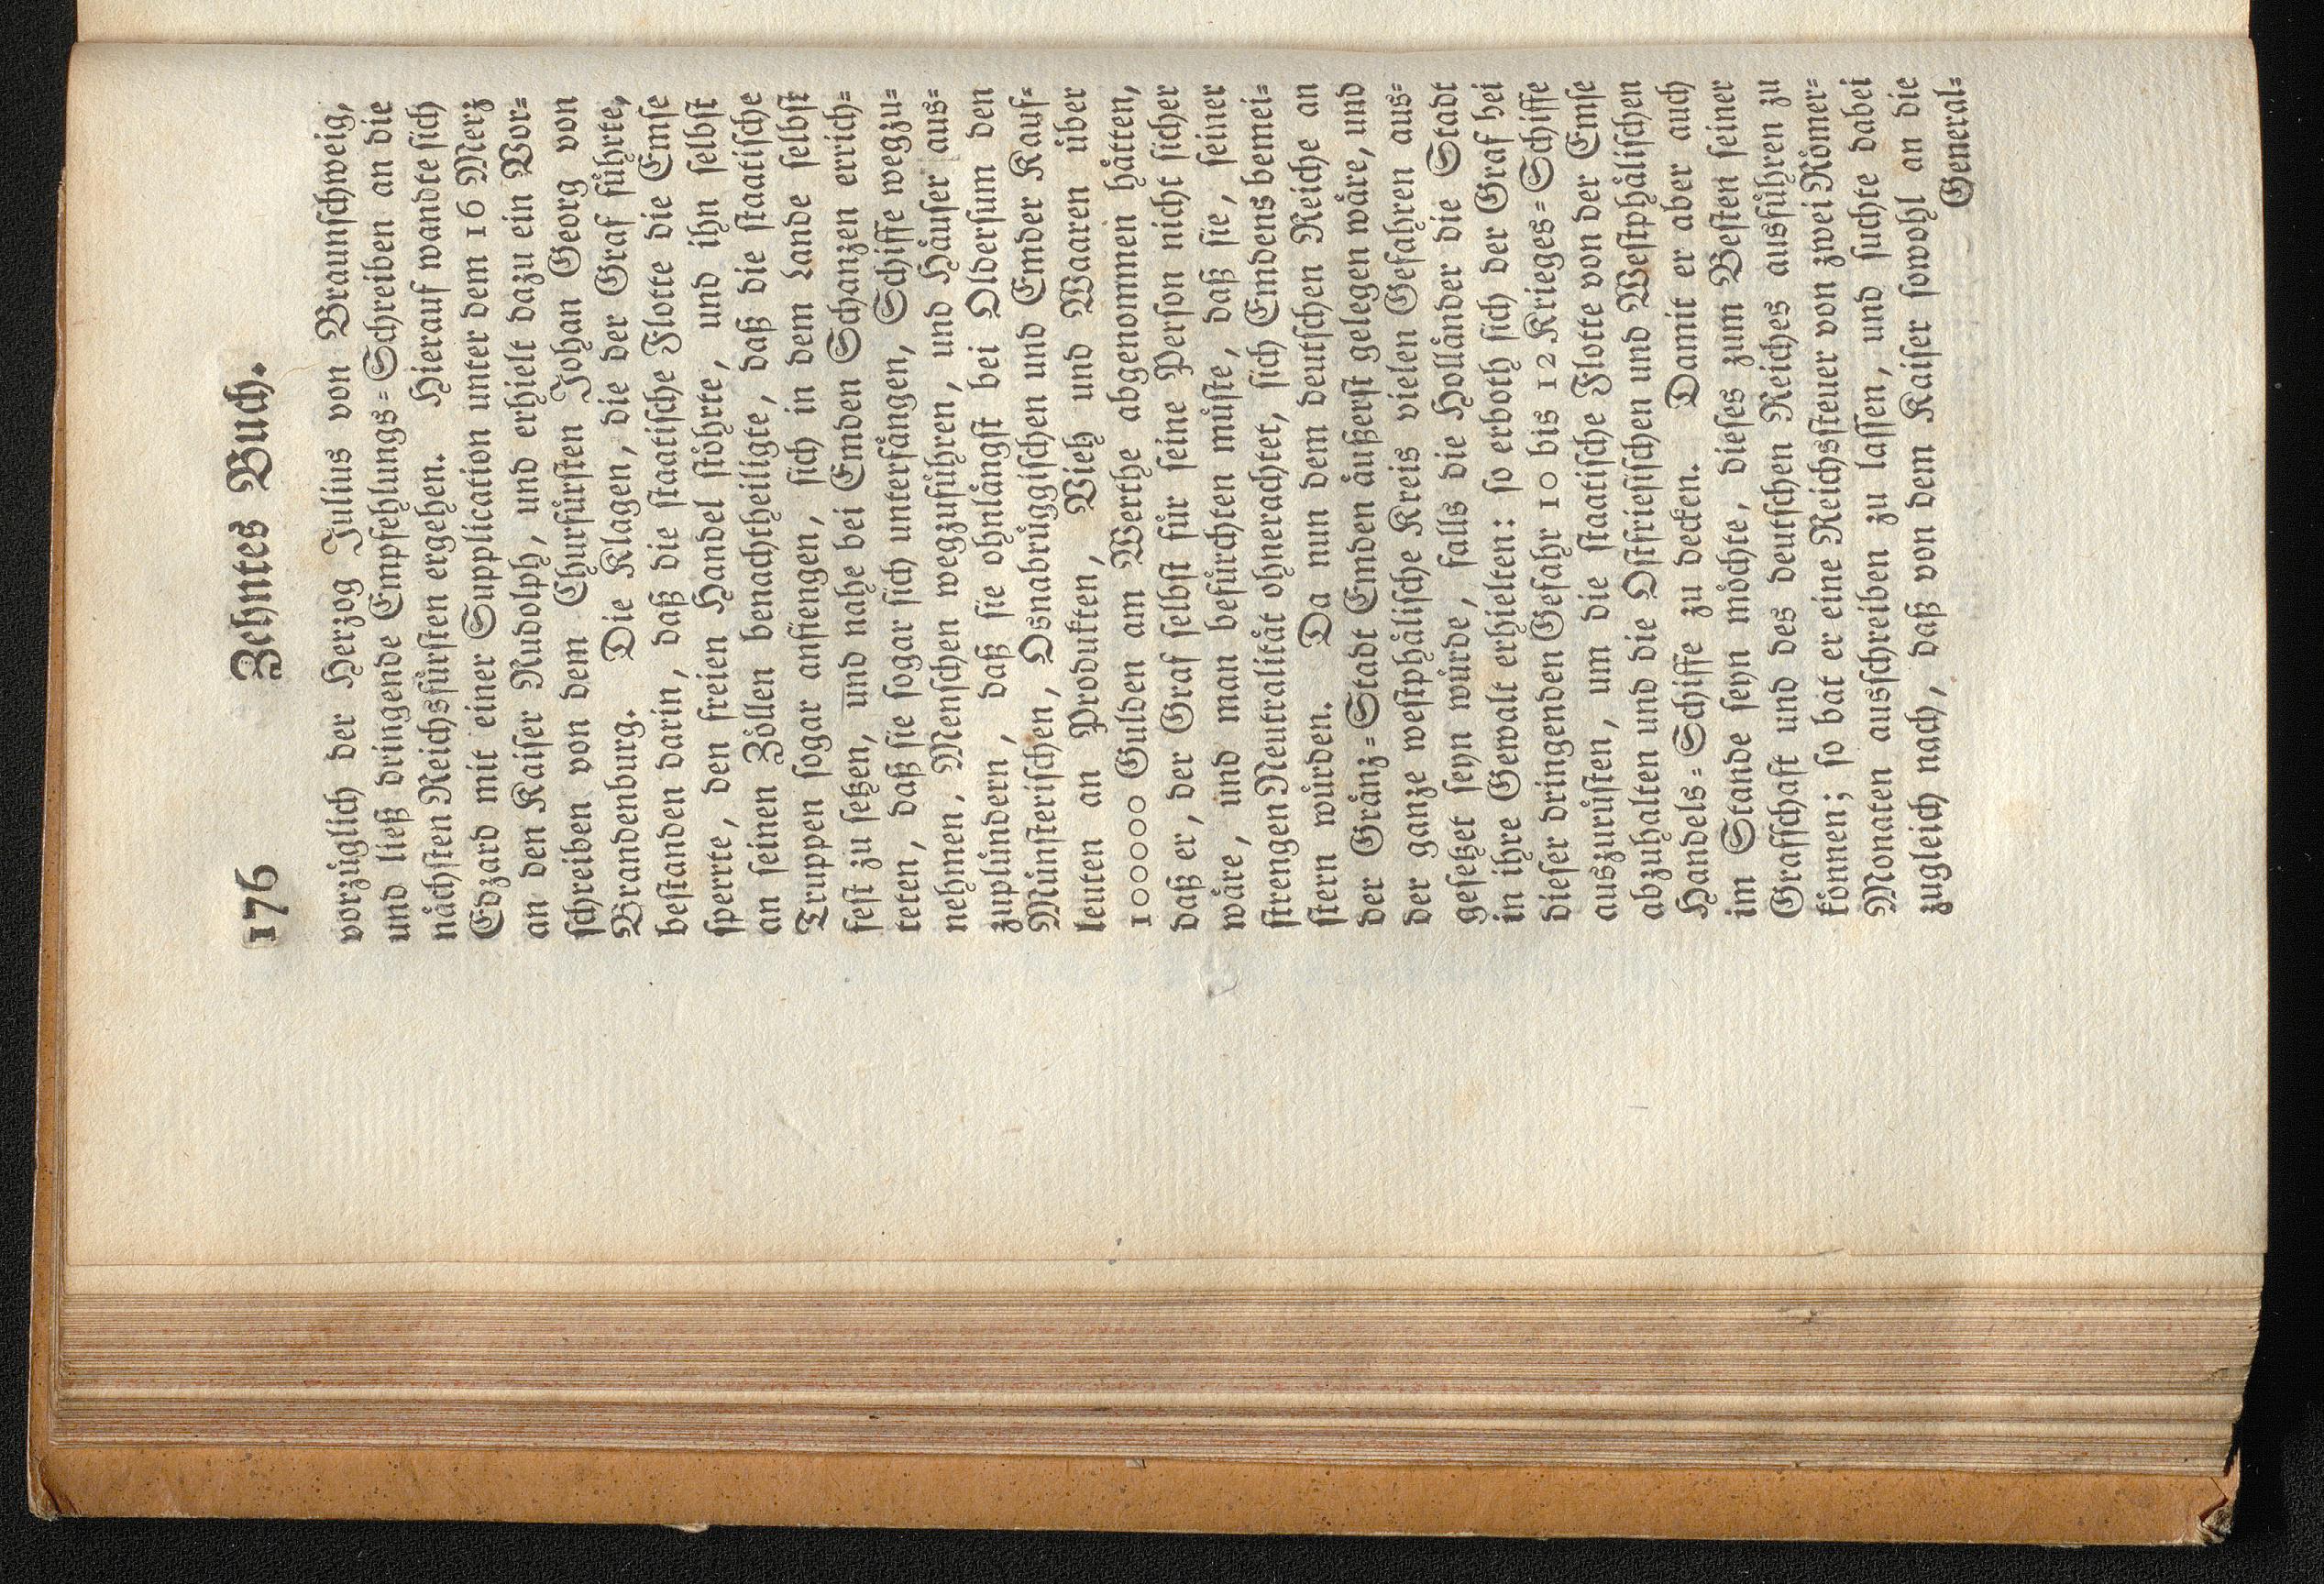 176 Zehntes Buch.
vorzüglich der Herzog Julius von Braunschweig,
und ließ dringende Empfehlungs-Schreiben an die
nächsten Reichsfürsten ergehen. Hierauf wandte sich
Edzard mit einer Supplication unter dem 16 Merz
an den Kaiser Rudolph, und erhielt dazu ein Vor-
schreiben von dem Churfürsten Johan Georg von
Brandenburg. Die Klagen, die der Graf führte,
bestanden darin, daß die staatische Flotte die Emse
sperrte, den freien Handel stöhrte, und ihn selbst
an seinen Zöllen benachtheiligte, daß die staatische
Truppen sogar anfiengen, sich in dem Lande selbst
fest zu setzen, und nahe bei Emden Schanzen errich-
teten, daß sie sogar sich unterfängen, Schiffe wegzu-
nehmen, Menschen wegzuführen, und Häuser aus-
zuplündern, daß sie ohnlängst bei Oldersum den
Münsterischen, Osnabrüggischen und Emder Kauf-
leuten an Produkten, Vieh und Waaren über
1000000 Gulden am Werthe abgenommen hätten,
daß er, der Graf selbst für seine Person nicht sicher
wäre, und man befürchten müste, daß sie, seiner
strengen Neutralität ohnerachtet, sich Emdens bemei-
stern würden. Da nun dem deutschen Reiche an
der Gränz-Stadt Emden äußerst gelegen wäre, und
der ganze westphälische Kreis vielen Gefahren aus-
gesetzet seyn würde, falls die Holländer die Stadt
in ihre Gewalt erhielten: so erboth sich der Graf bei
dieser dringenden Gefahr 10 bis 12 Krieges-Schiffe
auszurüsten, um die staatische Flotte von der Emse
abzuhalten und die Ostfriesischen und Westphälischen
Handels-Schiffe zu decken. Damit er aber auch
im Stande seyn möchte, dieses zum Besten seiner
Grafschaft und des deutschen Reiches ausführen zu
können; so bat er eine Reichssteuer von zwei Römer-
Monaten ausschreiben zu lassen, und suchte dabei
zugleich nach, daß von dem Kaiser sowohl an die
General-